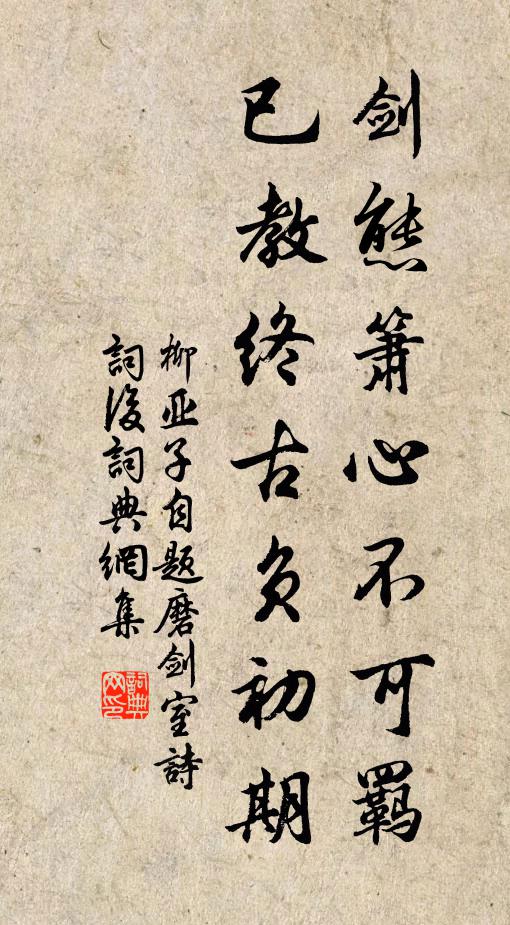 剑態箫心不可羁
已教终古负初期
柳亚子自题磨剑室詩
詞後詞典網集
詞典
网印